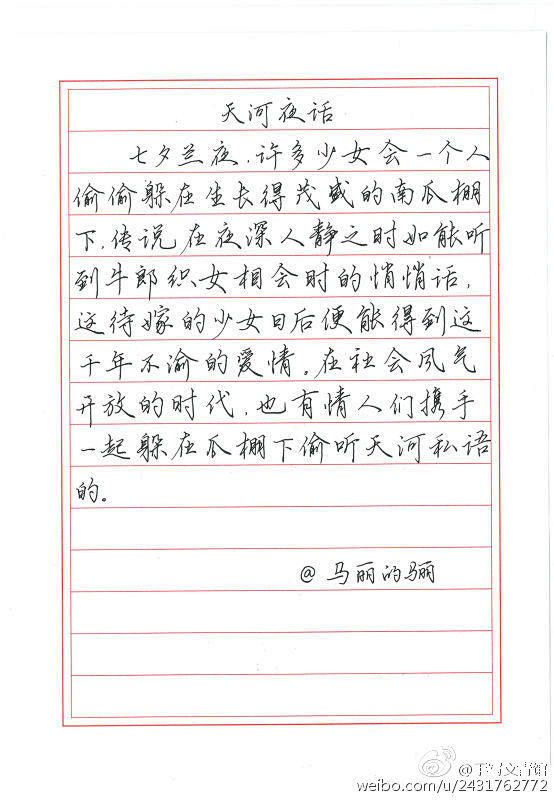 天河夜话
七夕兰夜，许多少女会一个人
偷偷躲在生长得茂盛的南瓜棚
下，传说在夜深人静之时如能听
到牛郎织女相会时的悄悄话，
这待嫁的少女日后便能得到这
千年不渝的爱情。在社会风气
开放的时代，也有情人们携手
一起躲在瓜棚下偷听天河私语
的。
@马丽的骊
weibo.com/u/2431762772